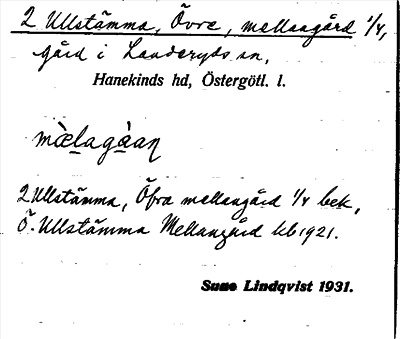 2 Ullstämma, Övre, mellangård 1/4,
gård i Landeryds sn,
Hanekinds hd, Östergötl. l.
mæ̀lagàan
2 Ullstämma, Öfra mellangård 1/4 bek,
Ö. Ullstämma Mellangård Ub 1921.
Sune Lindqvist 1931.